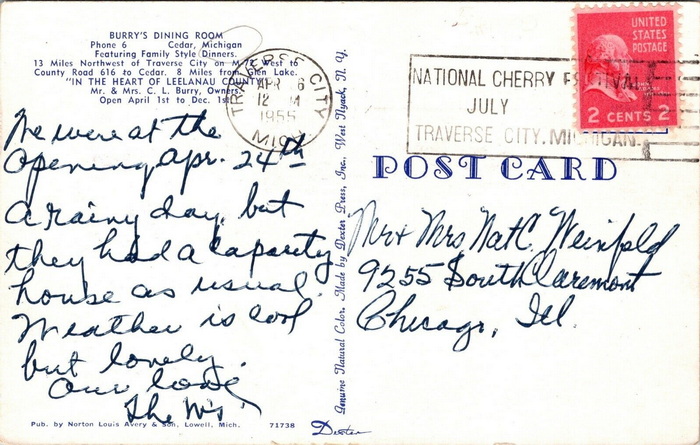 BURRY'S DINING ROOM
Phone 6 Cedar, Michigan
Featuring Family Style Dinners.
13 Miles Northwest of Traverse City on M-72 West to
County Road 616 to Cedar. 8 Miles from Glen Lake.
"IN THE HEART OF LEELANAU COUNTY"
Mr. & Mrs. C. L. Burry, Owners
Open April 1st to Dec. 1st
We were at the
Opening Apr. 24th
a rainy day, but
they had a capacity
house as usual.
Weather is cool
but lovely.
Our love
The W's
Pub. by Norton Louis Avery & Son, Lowell, Mich. 71738
Dexter
Genuine Natural Color. Made by Dexter Press, Inc., West Nyack, N. Y.
TRAVERSE CITY
APR 6
12 M
1955
MICH.
NATIONAL CHERRY FESTIVAL
JULY
TRAVERSE CITY, MICHIGAN
UNITED
STATES
POSTAGE
2 CENTS 2
POST CARD
Mr & Mrs Nat C. Weinfeld
9255 South Claremont
Chicago, Ill.